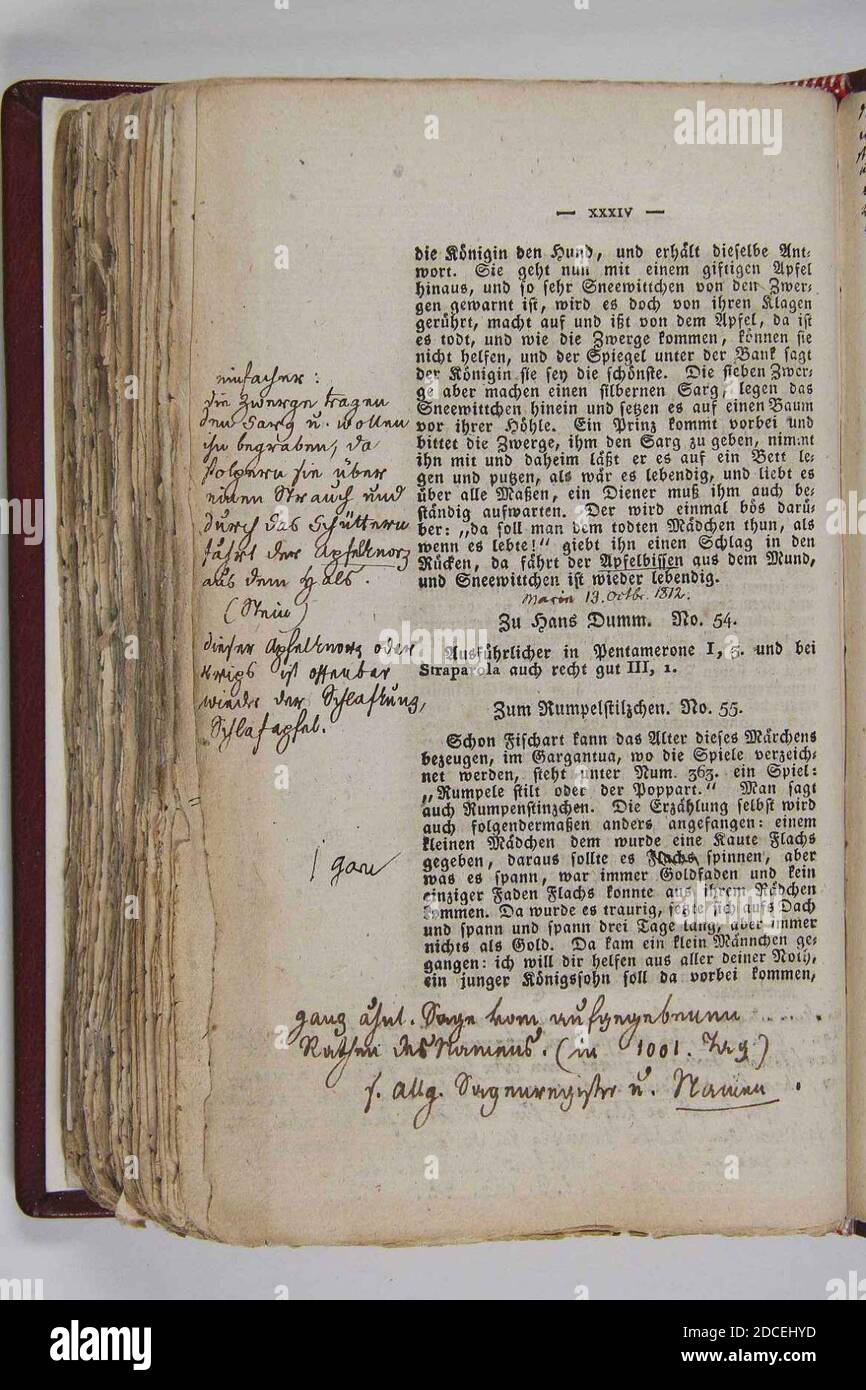 — XXXIV —
die Königin den Hund, und erhält dieselbe Ant-
wort. Sie geht nun mit einem giftigen Apfel
hinaus, und so sehr Sneewittchen von den Zwer-
gen gewarnt ist, wird es doch von ihren Klagen
gerührt, macht auf und ißt von dem Apfel, da ist
es todt, und wie die Zwerge kommen, können sie
nicht helfen, und der Spiegel unter der Bank sagt
der Königin sie sey die schönste. Die sieben Zwer-
ge aber machen einen silbernen Sarg, legen das
Sneewittchen hinein und setzen es auf einen Baum
vor ihrer Höhle. Ein Prinz kommt vorbei und
bittet die Zwerge, ihm den Sarg zu geben, nimmt
ihn mit und daheim läßt er es auf ein Bett le-
gen und putzen, als wär es lebendig, und liebt es
über alle Maßen, ein Diener muß ihm auch be-
ständig aufwarten. Der wird einmal bös darü-
ber: „da soll man dem todten Mädchen thun, als
wenn es lebte!“ giebt ihn einen Schlag in den
Rücken, da fährt der Apfelbissen aus dem Mund,
und Sneewittchen ist wieder lebendig.
Marie 13. Octbr. 1812.
Zu Hans Dumm. No. 54.
Ausführlicher in Pentamerone I, 3. und bei
Straparola auch recht gut III, 1.
Zum Rumpelstilzchen. No. 55.
Schon Fischart kann das Alter dieses Märchens
bezeugen, im Gargantua, wo die Spiele verzeich-
net werden, steht unter Num. 363. ein Spiel:
„Rumpele stilt oder der Poppart.“ Man sagt
auch Rumpenstinzchen. Die Erzählung selbst wird
auch folgendermaßen anders angefangen: einem
kleinen Mädchen dem wurde eine Kaute Flachs
gegeben, daraus sollte es Flachs spinnen, aber
was es spann, war immer Goldfaden und kein
einziger Faden Flachs konnte aus ihrem Rädchen
kommen. Da wurde es traurig, setzte sich aufs Dach
und spann und spann drei Tage lang, aber immer
nichts als Gold. Da kam ein klein Männchen ge-
gangen: ich will dir helfen aus aller deiner Noth,
ein junger Königssohn soll da vorbei kommen,
einfacher:
die Zwerge tragen
den Sarg u. wollen
ihn begraben, da
stolpern sie über
einen Strauch und
durch das Schüttern
fährt der Apfelknorz
aus dem Hals.
(Stein)
dieser Apfelknorz oder
krips ist offenbar
wieder der Schlafkunz,
Schlafapfel.
garn
ganz ähnl. Sage vom aufgegebenen
Rathen des Namens. (in 1001. Tag)
s. allg. Sagenregister u. Namen
alamy
Image ID: 2DCEHYD
www.alamy.com